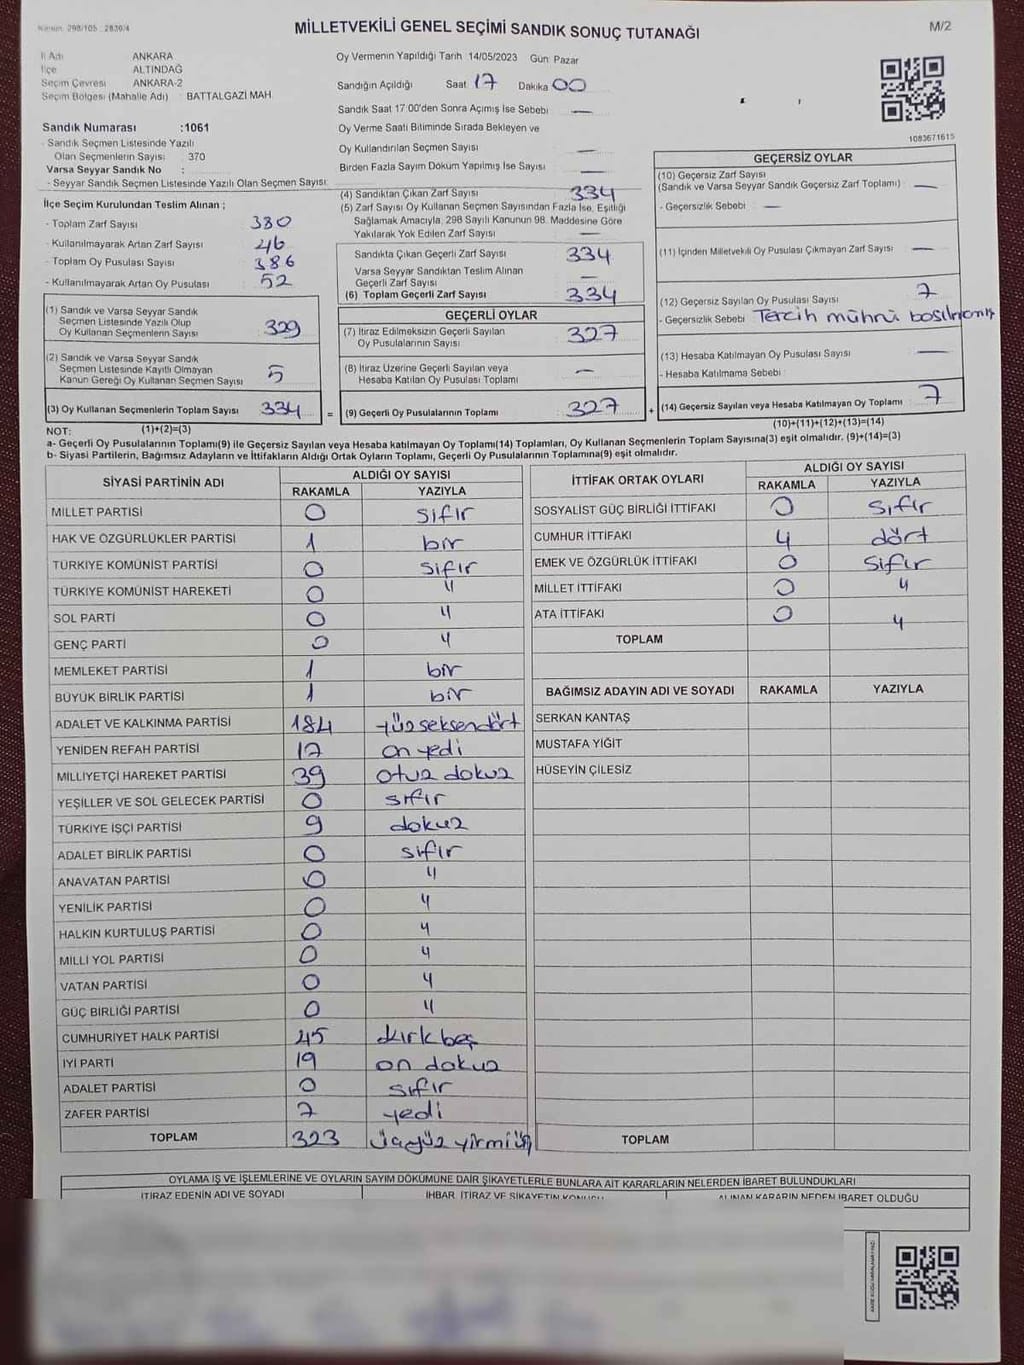 Kanun: 298/105 2839/4
MİLLETVEKİLİ GENEL SEÇİMİ SANDIK SONUÇ TUTANAĞI
M/2
İl Adı ANKARA
İlçe ALTINDAĞ
Seçim Çevresi ANKARA-2
Seçim Bölgesi (Mahalle Adı) : BATTALGAZİ MAH.
Oy Vermenin Yapıldığı Tarih 14/05/2023 Gün: Pazar
Sandığın Açıldığı Saat 17 Dakika 00
Sandık Saat 17:00'den Sonra Açımış İse Sebebi —
Oy Verme Saati Bitiminde Sırada Bekleyen ve
Oy Kullandırılan Seçmen Sayısı —
Birden Fazla Sayım Döküm Yapılmış İse Sayısı —
1083671615
Sandık Numarası :1061
- Sandık Seçmen Listesinde Yazılı
Olan Seçmenlerin Sayısı : 370
Varsa Seyyar Sandık No :
- Seyyar Sandık Seçmen Listesinde Yazılı Olan Seçmen Sayısı:
İlçe Seçim Kurulundan Teslim Alınan ;
- Toplam Zarf Sayısı 380
- Kullanılmayarak Artan Zarf Sayısı 46
- Toplam Oy Pusulası Sayısı 386
- Kullanılmayarak Artan Oy Pusulası 52
(1) Sandık ve Varsa Seyyar Sandık
Seçmen Listesinde Yazılı Olup
Oy Kullanan Seçmenlerin Sayısı 329
(2) Sandık ve Varsa Seyyar Sandık
Seçmen Listesinde Kayıtlı Olmayan
Kanun Gereği Oy Kullanan Seçmen Sayısı 5
(3) Oy Kullanan Seçmenlerin Toplam Sayısı 334
(4) Sandıktan Çıkan Zarf Sayısı 334
(5) Zarf Sayısı Oy Kullanan Seçmen Sayısından Fazla İse, Eşitliği
Sağlamak Amacıyla, 298 Sayılı Kanunun 98. Maddesine Göre
Yakılarak Yok Edilen Zarf Sayısı —
Sandıkta Çıkan Geçerli Zarf Sayısı 334
Varsa Seyyar Sandıktan Teslim Alınan
Geçerli Zarf Sayısı —
(6) Toplam Geçerli Zarf Sayısı 334
GEÇERLİ OYLAR
(7) İtiraz Edilmeksizin Geçerli Sayılan
Oy Pusulalarının Sayısı 327
(8) İtiraz Üzerine Geçerli Sayılan veya
Hesaba Katılan Oy Pusulası Toplamı —
= (9) Geçerli Oy Pusulalarının Toplamı 327
GEÇERSİZ OYLAR
(10) Geçersiz Zarf Sayısı
(Sandık ve Varsa Seyyar Sandık Geçersiz Zarf Toplamı) —
- Geçersizlik Sebebi : —
(11) İçinden Milletvekili Oy Pusulası Çıkmayan Zarf Sayısı —
(12) Geçersiz Sayılan Oy Pusulası Sayısı 7
- Geçersizlik Sebebi : Tercih mührü basılmamış
(13) Hesaba Katılmayan Oy Pusulası Sayısı —
- Hesaba Katılmama Sebebi :
+ (14) Geçersiz Sayılan veya Hesaba Katılmayan Oy Toplamı 7
NOT: (1)+(2)=(3)
(10)+(11)+(12)+(13)=(14)
a- Geçerli Oy Pusulalarının Toplamı(9) ile Geçersiz Sayılan veya Hesaba katılmayan Oy Toplamı(14) Toplamları, Oy Kullanan Seçmenlerin Toplam Sayısına(3) eşit olmalıdır. (9)+(14)=(3)
b- Siyasi Partilerin, Bağımsız Adayların ve İttifakların Aldığı Ortak Oyların Toplamı, Geçerli Oy Pusulalarının Toplamına(9) eşit olmalıdır.
SİYASİ PARTİNİN ADI ALDIĞI OY SAYISI
RAKAMLA YAZIYLA
MİLLET PARTİSİ 0 sıfır
HAK VE ÖZGÜRLÜKLER PARTİSİ 1 bir
TÜRKİYE KOMÜNİST PARTİSİ 0 sıfır
TÜRKİYE KOMÜNİST HAREKETİ 0 "
SOL PARTİ 0 "
GENÇ PARTİ 0 "
MEMLEKET PARTİSİ 1 bir
BÜYÜK BİRLİK PARTİSİ 1 bir
ADALET VE KALKINMA PARTİSİ 184 yüzseksendört
YENİDEN REFAH PARTİSİ 17 on yedi
MİLLİYETÇİ HAREKET PARTİSİ 39 otuz dokuz
YEŞİLLER VE SOL GELECEK PARTİSİ 0 sıfır
TÜRKİYE İŞÇİ PARTİSİ 9 dokuz
ADALET BİRLİK PARTİSİ 0 sıfır
ANAVATAN PARTİSİ 0 "
YENİLİK PARTİSİ 0 "
HALKIN KURTULUŞ PARTİSİ 0 "
MİLLİ YOL PARTİSİ 0 "
VATAN PARTİSİ 0 "
GÜÇ BİRLİĞİ PARTİSİ 0 "
CUMHURİYET HALK PARTİSİ 45 kırk beş
İYİ PARTİ 19 on dokuz
ADALET PARTİSİ 0 sıfır
ZAFER PARTİSİ 7 yedi
TOPLAM 323 üçyüz yirmi üç
İTTİFAK ORTAK OYLARI ALDIĞI OY SAYISI
RAKAMLA YAZIYLA
SOSYALİST GÜÇ BİRLİĞİ İTTİFAKI 0 sıfır
CUMHUR İTTİFAKI 4 dört
EMEK VE ÖZGÜRLÜK İTTİFAKI 0 sıfır
MİLLET İTTİFAKI 0 "
ATA İTTİFAKI 0 "
TOPLAM
BAĞIMSIZ ADAYIN ADI VE SOYADI RAKAMLA YAZIYLA
SERKAN KANTAŞ
MUSTAFA YİĞİT
HÜSEYİN ÇİLESİZ
TOPLAM
OYLAMA İŞ VE İŞLEMLERİNE VE OYLARIN SAYIM DÖKÜMÜNE DAİR ŞİKAYETLERLE BUNLARA AİT KARARLARIN NELERDEN İBARET BULUNDUKLARI
İTİRAZ EDENİN ADI VE SOYADI İHBAR, İTİRAZ VE ŞİKAYETİN KONUSU ALINAN KARARIN NEDEN İBARET OLDUĞU